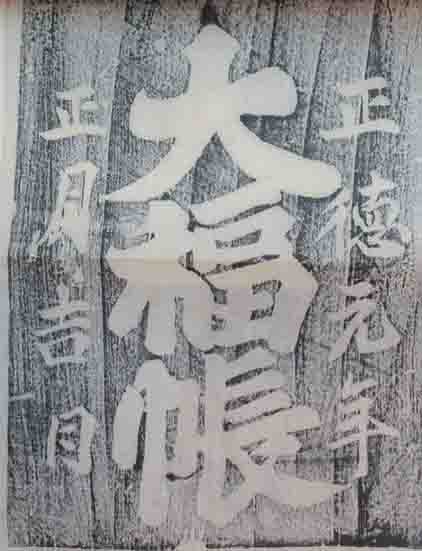 正徳元年
大福帳
正月吉日